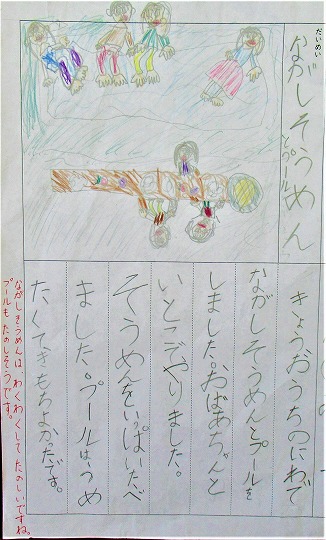 だいめい
ながしそうめん
とプール
きょうおうちのにわで
ながしそうめんとプールを
しました。おばあちゃんと
いとこでやりました。
そうめんをいっぱいたべ
ました。プールはつめ
たくてきもちよかったです。
ながしそうめんは、わくわくして たのしいですね。
プールも たのしそうです。